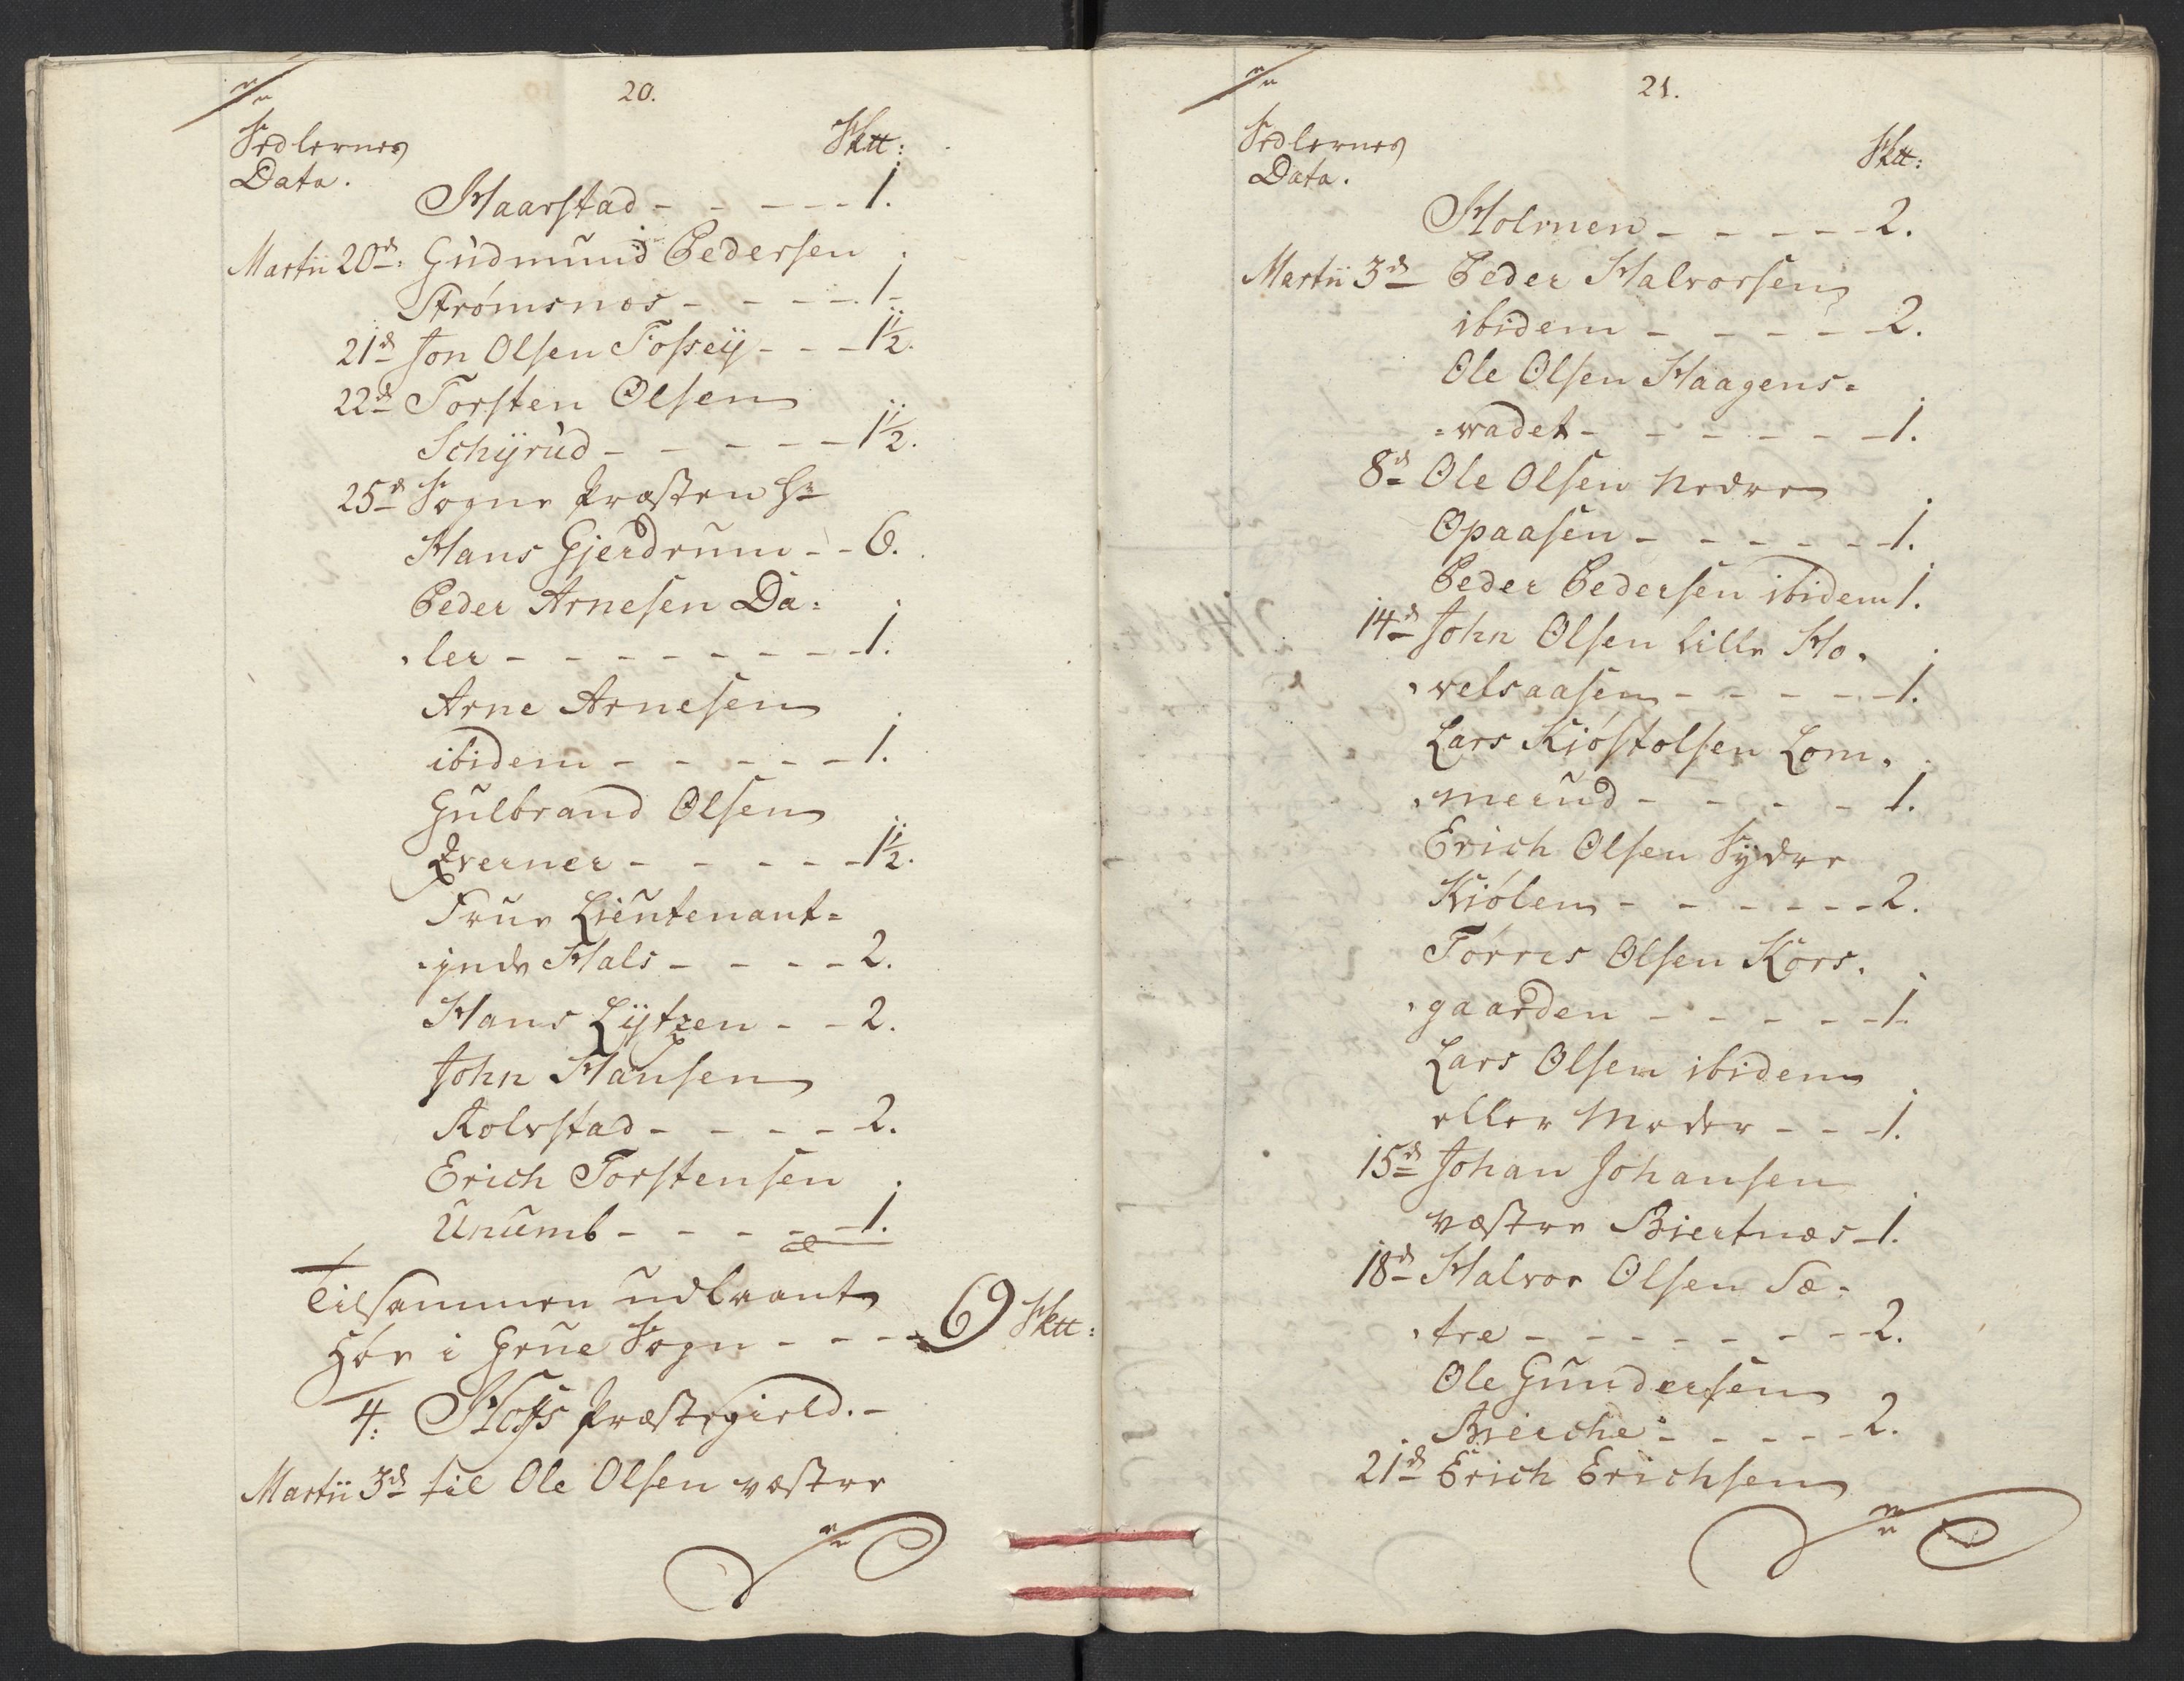 20.
Sedlernes
Data.
Sktt:
Haarstad - - - - - 1.
Martii 20d: Gudmund Pedersen
Strømsnes - - - - 1.
21d Jon Olsen Fossey - - - 1½.
22d Torsten Olsen
Schyrud - - - - - 1½.
25d Sogne Præsten Hr
Hans Gjerdrum - - 6.
Peder Arnesen Da=
=ler - - - - - - - 1.
Arne Arnesen
ibidem - - - - - 1.
Gulbrand Olsen
Qverner - - - - - 1½.
Frue Lieutenant=
=inde Hals - - - - 2.
Hans Lytzen - - 2.
John Hansen
Kolvstad - - - - - 2.
Erich Torstensen
Unumb - - - - - 1.
Tilsammen udlaant
Høe i Grue Sogn - - - 69 Sktt:
4: Hofs Præstegield. -
Martii 3d til Ole Olsen væstre
21.
Sedlernes
Data.
Sktt:
Holmen - - - - - 2.
Martii 3d Peder Halvorsen
ibidem - - - - - 2.
Ole Olsen Haagens=
=wadet - - - - - - 1.
8d Ole Olsen Nedre
Opaasen - - - - - - 1.
Peder Pedersen ibidem 1.
14d John Olsen Lille Ho=
=velsaasen - - - - - 1.
Lars Kiøstolsen Lom=
=merud - - - - 1.
Erich Olsen Sydre
Kiølen - - - - - - 2.
Torres Olsen Kors=
=gaarden - - - - - 1.
Lars Olsen ibidem
eller Meder - - - 1.
15d Johan Johansen
væstre Biertnæs - 1.
18d Halvor Olsen Sæ=
=tre - - - - - - - 2.
Ole Gundersen
Bierche - - - - - 2.
21d Erich Erichsen